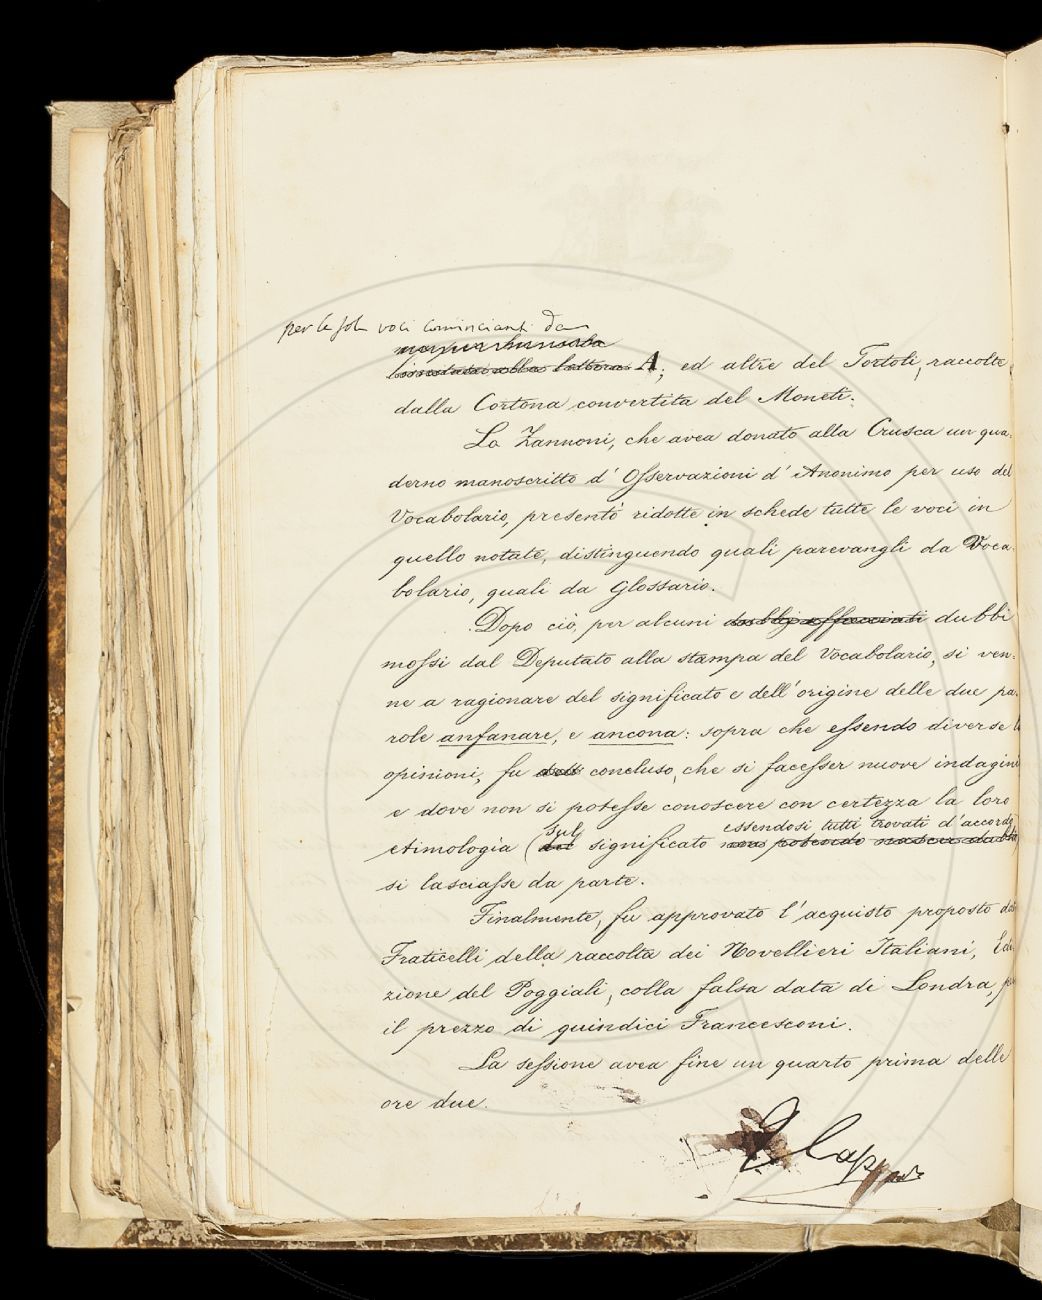 per le sole voci comincianti da
limitata alla lettera A; ed altre del Tortoli, raccolte
dalla Cortona convertita del Moneti.
Lo Zannoni, che avea donato alla Crusca un qua-
derno manoscritto d'Osservazioni d'Anonimo per uso del
Vocabolario, presentò ridotte in schede tutte le voci in
quello notate, distinguendo quali parevangli da Voca-
bolario, quali da Glossario.
Dopo ciò, per alcuni dubbj affacciati dubbi
mossi dal Deputato alla stampa del Vocabolario, si ven-
ne a ragionare del significato e dell'origine delle due pa-
role anfanare, e ancona: sopra che essendo diverse le
opinioni, fu concluso, che si facesser nuove indagini
e dove non si potesse conoscere con certezza la loro
essendosi tutti trovati d'accordo
sul
etimologia (del significato non potendo nascer dubbio)
si lasciasse da parte.
Finalmente, fu approvato l'acquisto proposto dal
Fraticelli della raccolta dei Novellieri Italiani, Edi-
zione del Poggiali, colla falsa data di Londra, per
il prezzo di quindici Francesconi.
La sessione avea fine un quarto prima delle
ore due.
G Capponi